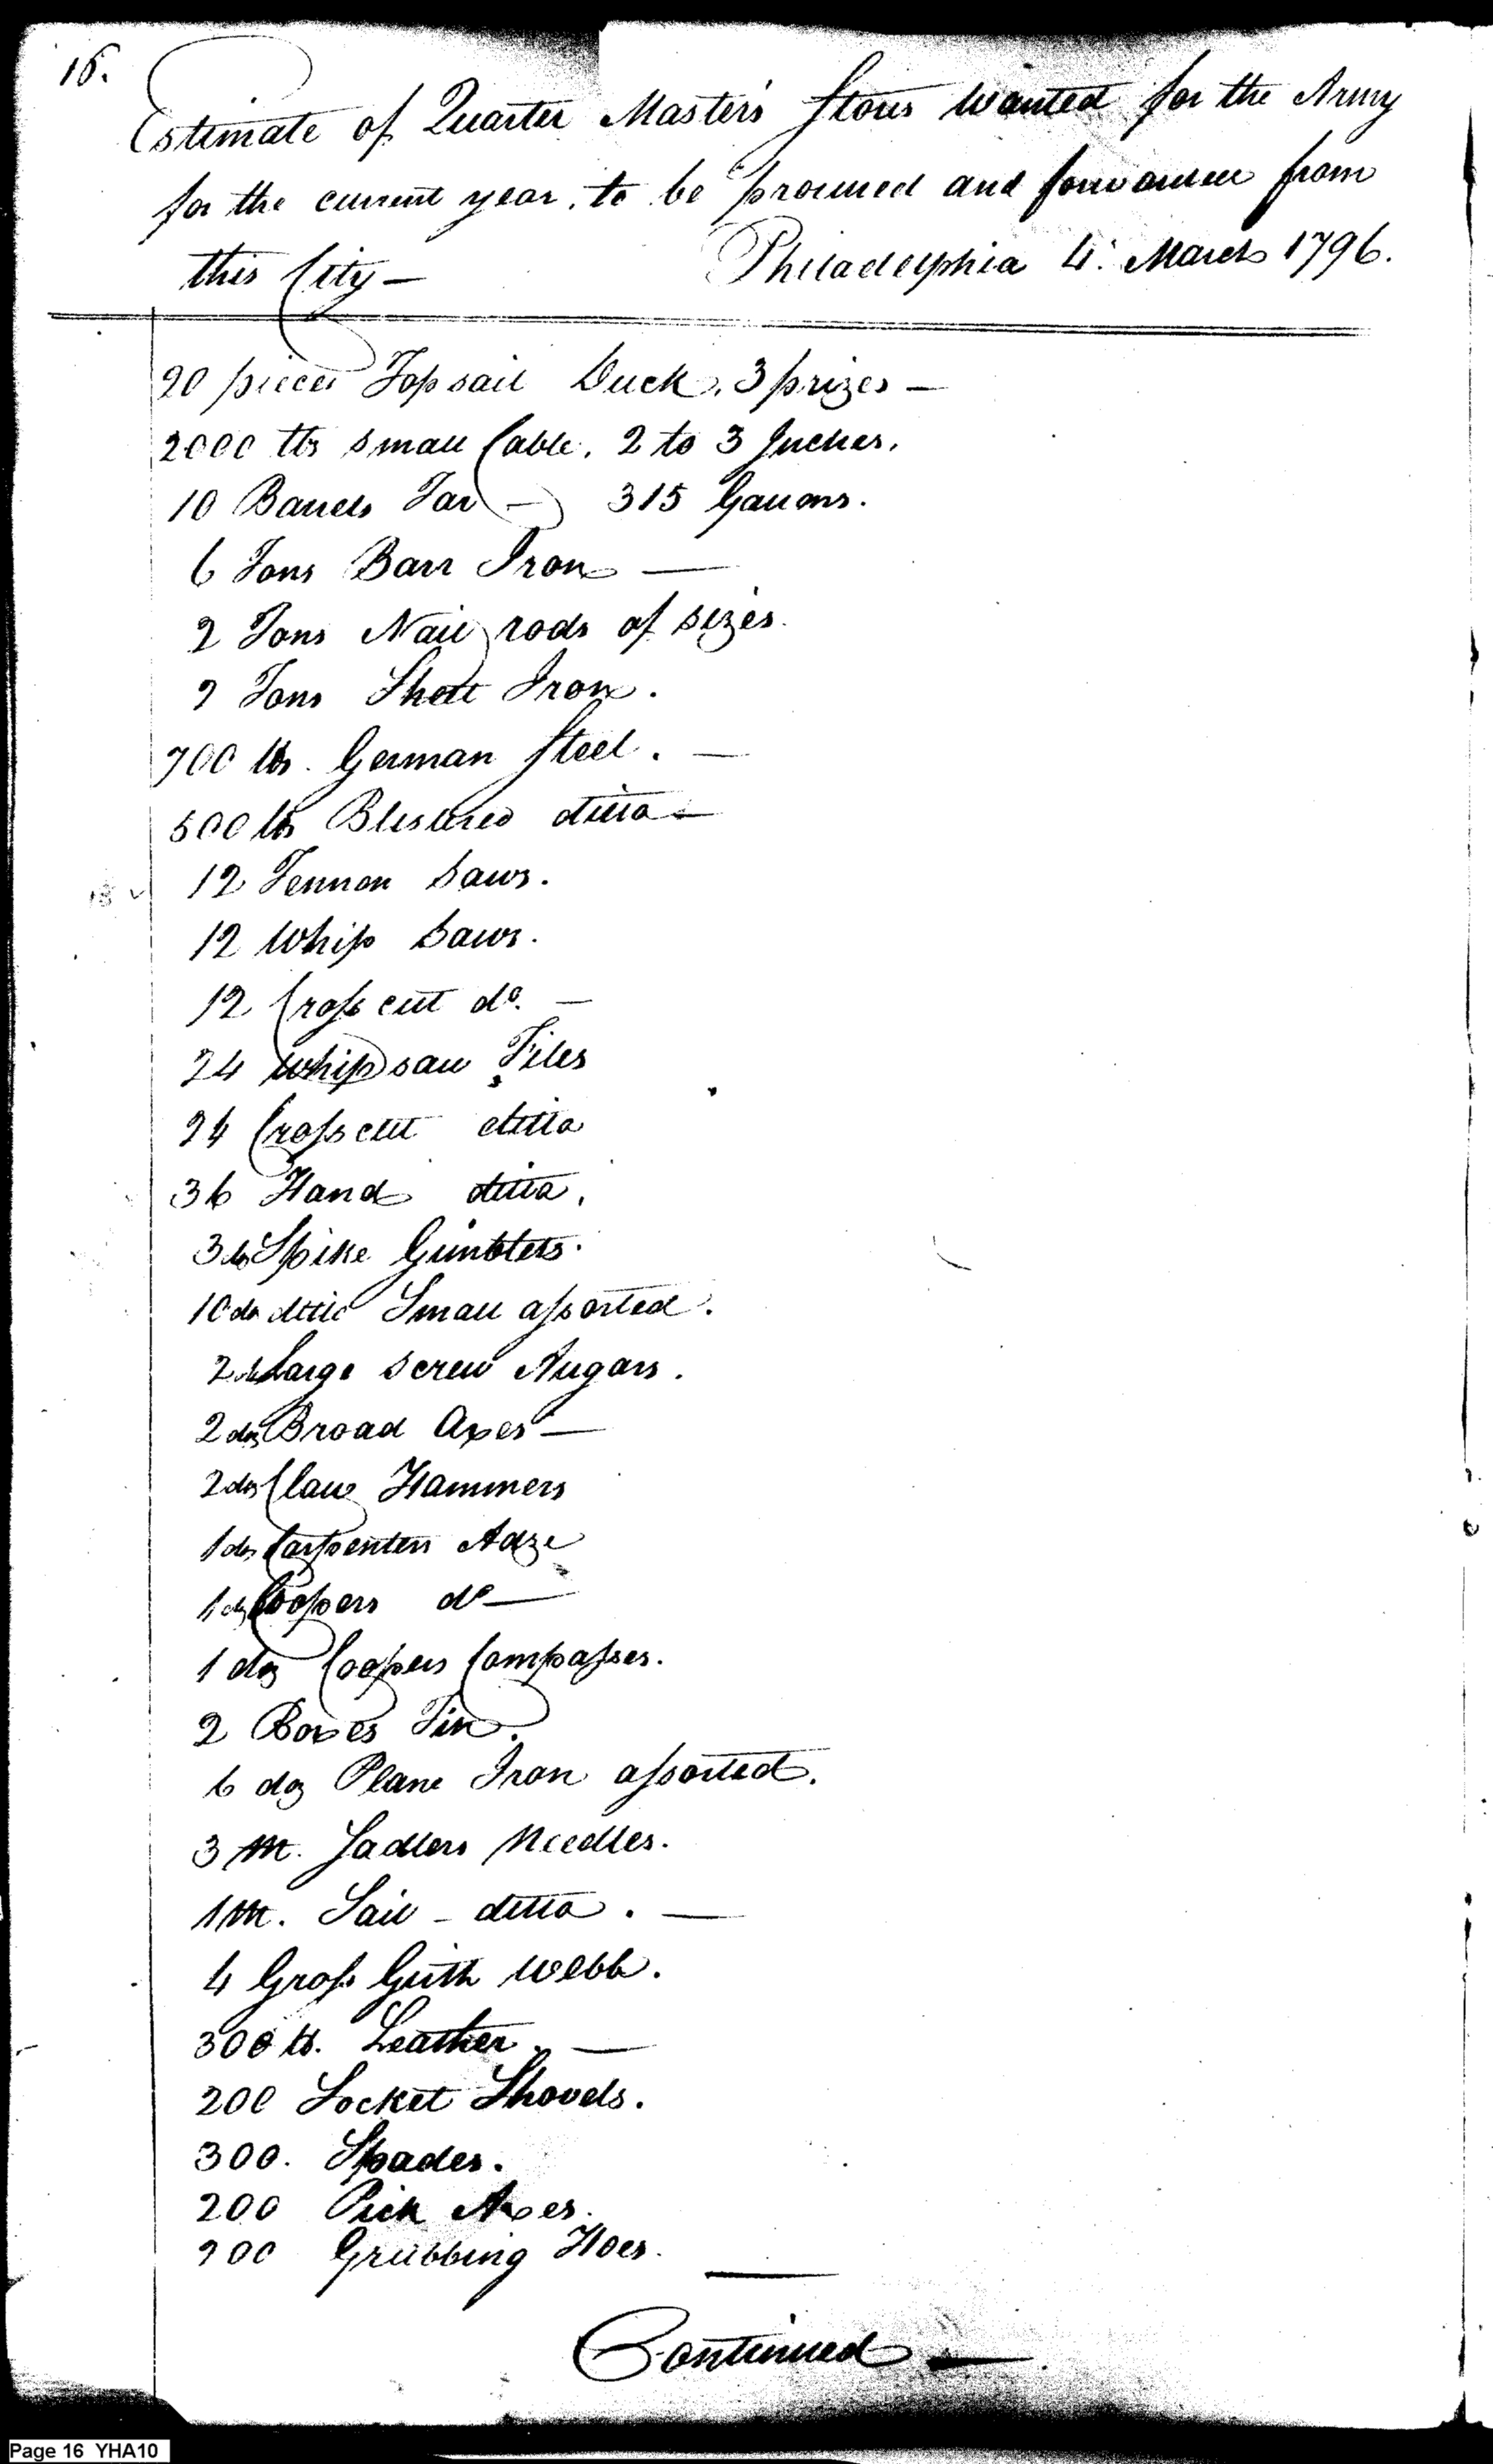 16.
Estimate of Quarter Master's Stores wanted for the Army
for the current year, to be procured and forwarded from
this City — Philadelphia 4. March 1796.
20 pieces Topsail Duck. 3 prizes —
2000 lbs small Cable. 2 to 3 Inches.
10 Barrels Tar — 315 Gallons.
6 Tons Barr Iron —
2 Tons Nail rods of sizes.
2 Tons Sheet Iron.
700 lbs. German Steel. —
500 lbs Blistered ditto —
12 Tennon Saws.
12 Whip Saws.
12 Cross cut do. —
24 Whip saw Files
24 Cross cut ditto
36 Hand ditto.
3 do Spike Gimblets.
10 do ditto Small assorted.
2 do Large Screw Augars.
2 doz Broad Axes —
2 doz Claw Hammers
1 doz Carpenters Adze
1 doz Coopers do —
1 doz Coopers Compasses.
2 Boxes Tin.
6 doz Plane Iron assorted.
3 M. Sadlers Needles.
1 M. Sail - ditto. —
4 Gross Girth Webb.
300 lb. Leather. —
200 Socket Shovels.
300. Spades.
200 Pick Axes.
200 Grubbing Hoes.
Continued —
Page 16 YHA10